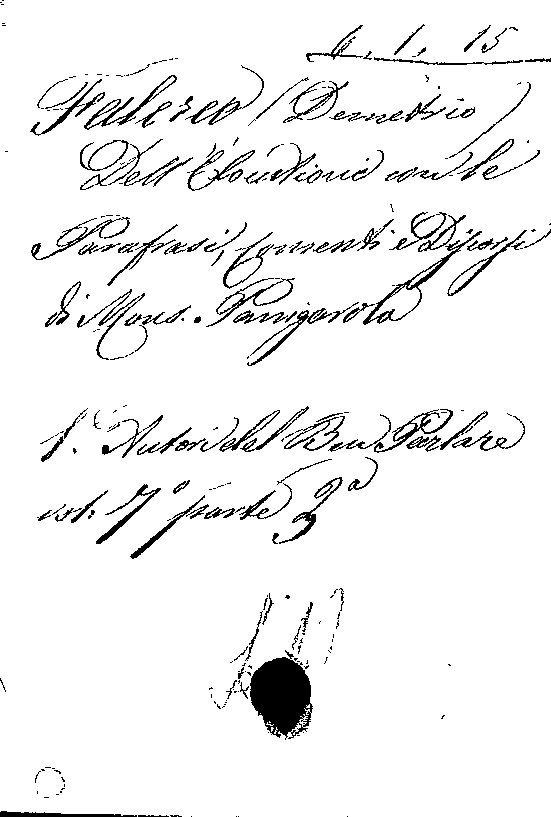 6. 1. 15
Falereo (Demetrio)
Dell'Elocutione con le
Parafrasi, Comenti e Discorsi
di Mons. Panigarola
Autori del Ben Parlare
vol. 7° parte 3ª